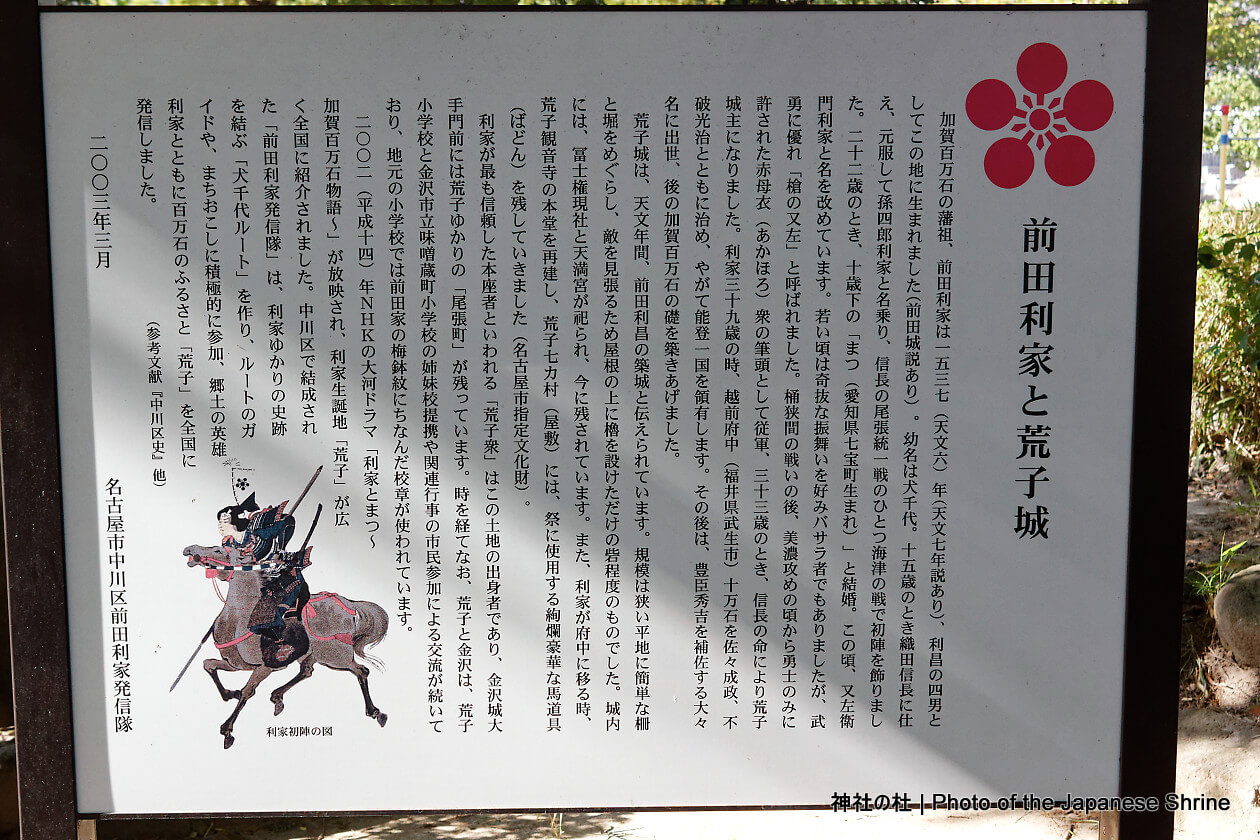 前田利家と荒子城
加賀百万石の藩祖、前田利家は一五三七（天文六）年（天文七年説あり）、利昌の四男と
してこの地に生まれました（前田城説あり）。幼名は犬千代。十五歳のとき織田信長に仕
え、元服して孫四郎利家と名乗り、信長の尾張統一戦のひとつ海津の戦で初陣を飾りまし
た。二十二歳のとき、十歳下の「まつ（愛知県七宝町生まれ）」と結婚。この頃、又左衛
門利家と名を改めています。若い頃は奇抜な振舞いを好みバサラ者でもありましたが、武
勇に優れ「槍の又左」と呼ばれました。桶狭間の戦いの後、美濃攻めの頃から勇士のみに
許された赤母衣（あかほろ）衆の筆頭として従軍、三十三歳のとき、信長の命により荒子
城主になりました。利家三十九歳の時、越前府中（福井県武生市）十万石を佐々成政、不
破光治とともに治め、やがて能登一国を領有します。その後は、豊臣秀吉を補佐する大々
名に出世、後の加賀百万石の礎を築きあげました。
荒子城は、天文年間、前田利昌の築城と伝えられています。規模は狭い平地に簡単な柵
と堀をめぐらし、敵を見張るため屋根の上に櫓を設けただけの砦程度のものでした。城内
には、冨士権現社と天満宮が祀られ、今に残されています。また、利家が府中に移る時、
荒子観音寺の本堂を再建し、荒子七カ村（屋敷）には、祭に使用する絢爛豪華な馬道具
（ばどん）を残していきました（名古屋市指定文化財）。
利家が最も信頼した本座者といわれる「荒子衆」はこの土地の出身者であり、金沢城大
手門前には荒子ゆかりの「尾張町」が残っています。時を経てなお、荒子と金沢は、荒子
小学校と金沢市立味噌蔵町小学校の姉妹校提携や関連行事の市民参加による交流が続いて
おり、地元の小学校では前田家の梅鉢紋にちなんだ校章が使われています。
二〇〇二（平成十四）年ＮＨＫの大河ドラマ「利家とまつ～
加賀百万石物語～」が放映され、利家生誕地「荒子」が広
く全国に紹介されました。中川区で結成され
た「前田利家発信隊」は、利家ゆかりの史跡
を結ぶ「犬千代ルート」を作り、ルートのガ
イドや、まちおこしに積極的に参加、郷土の英雄
利家とともに百万石のふるさと「荒子」を全国に
発信しました。
（参考文献『中川区史』他）
二〇〇三年三月
名古屋市中川区前田利家発信隊
利家初陣の図
神社の杜 | Photo of the Japanese Shrine